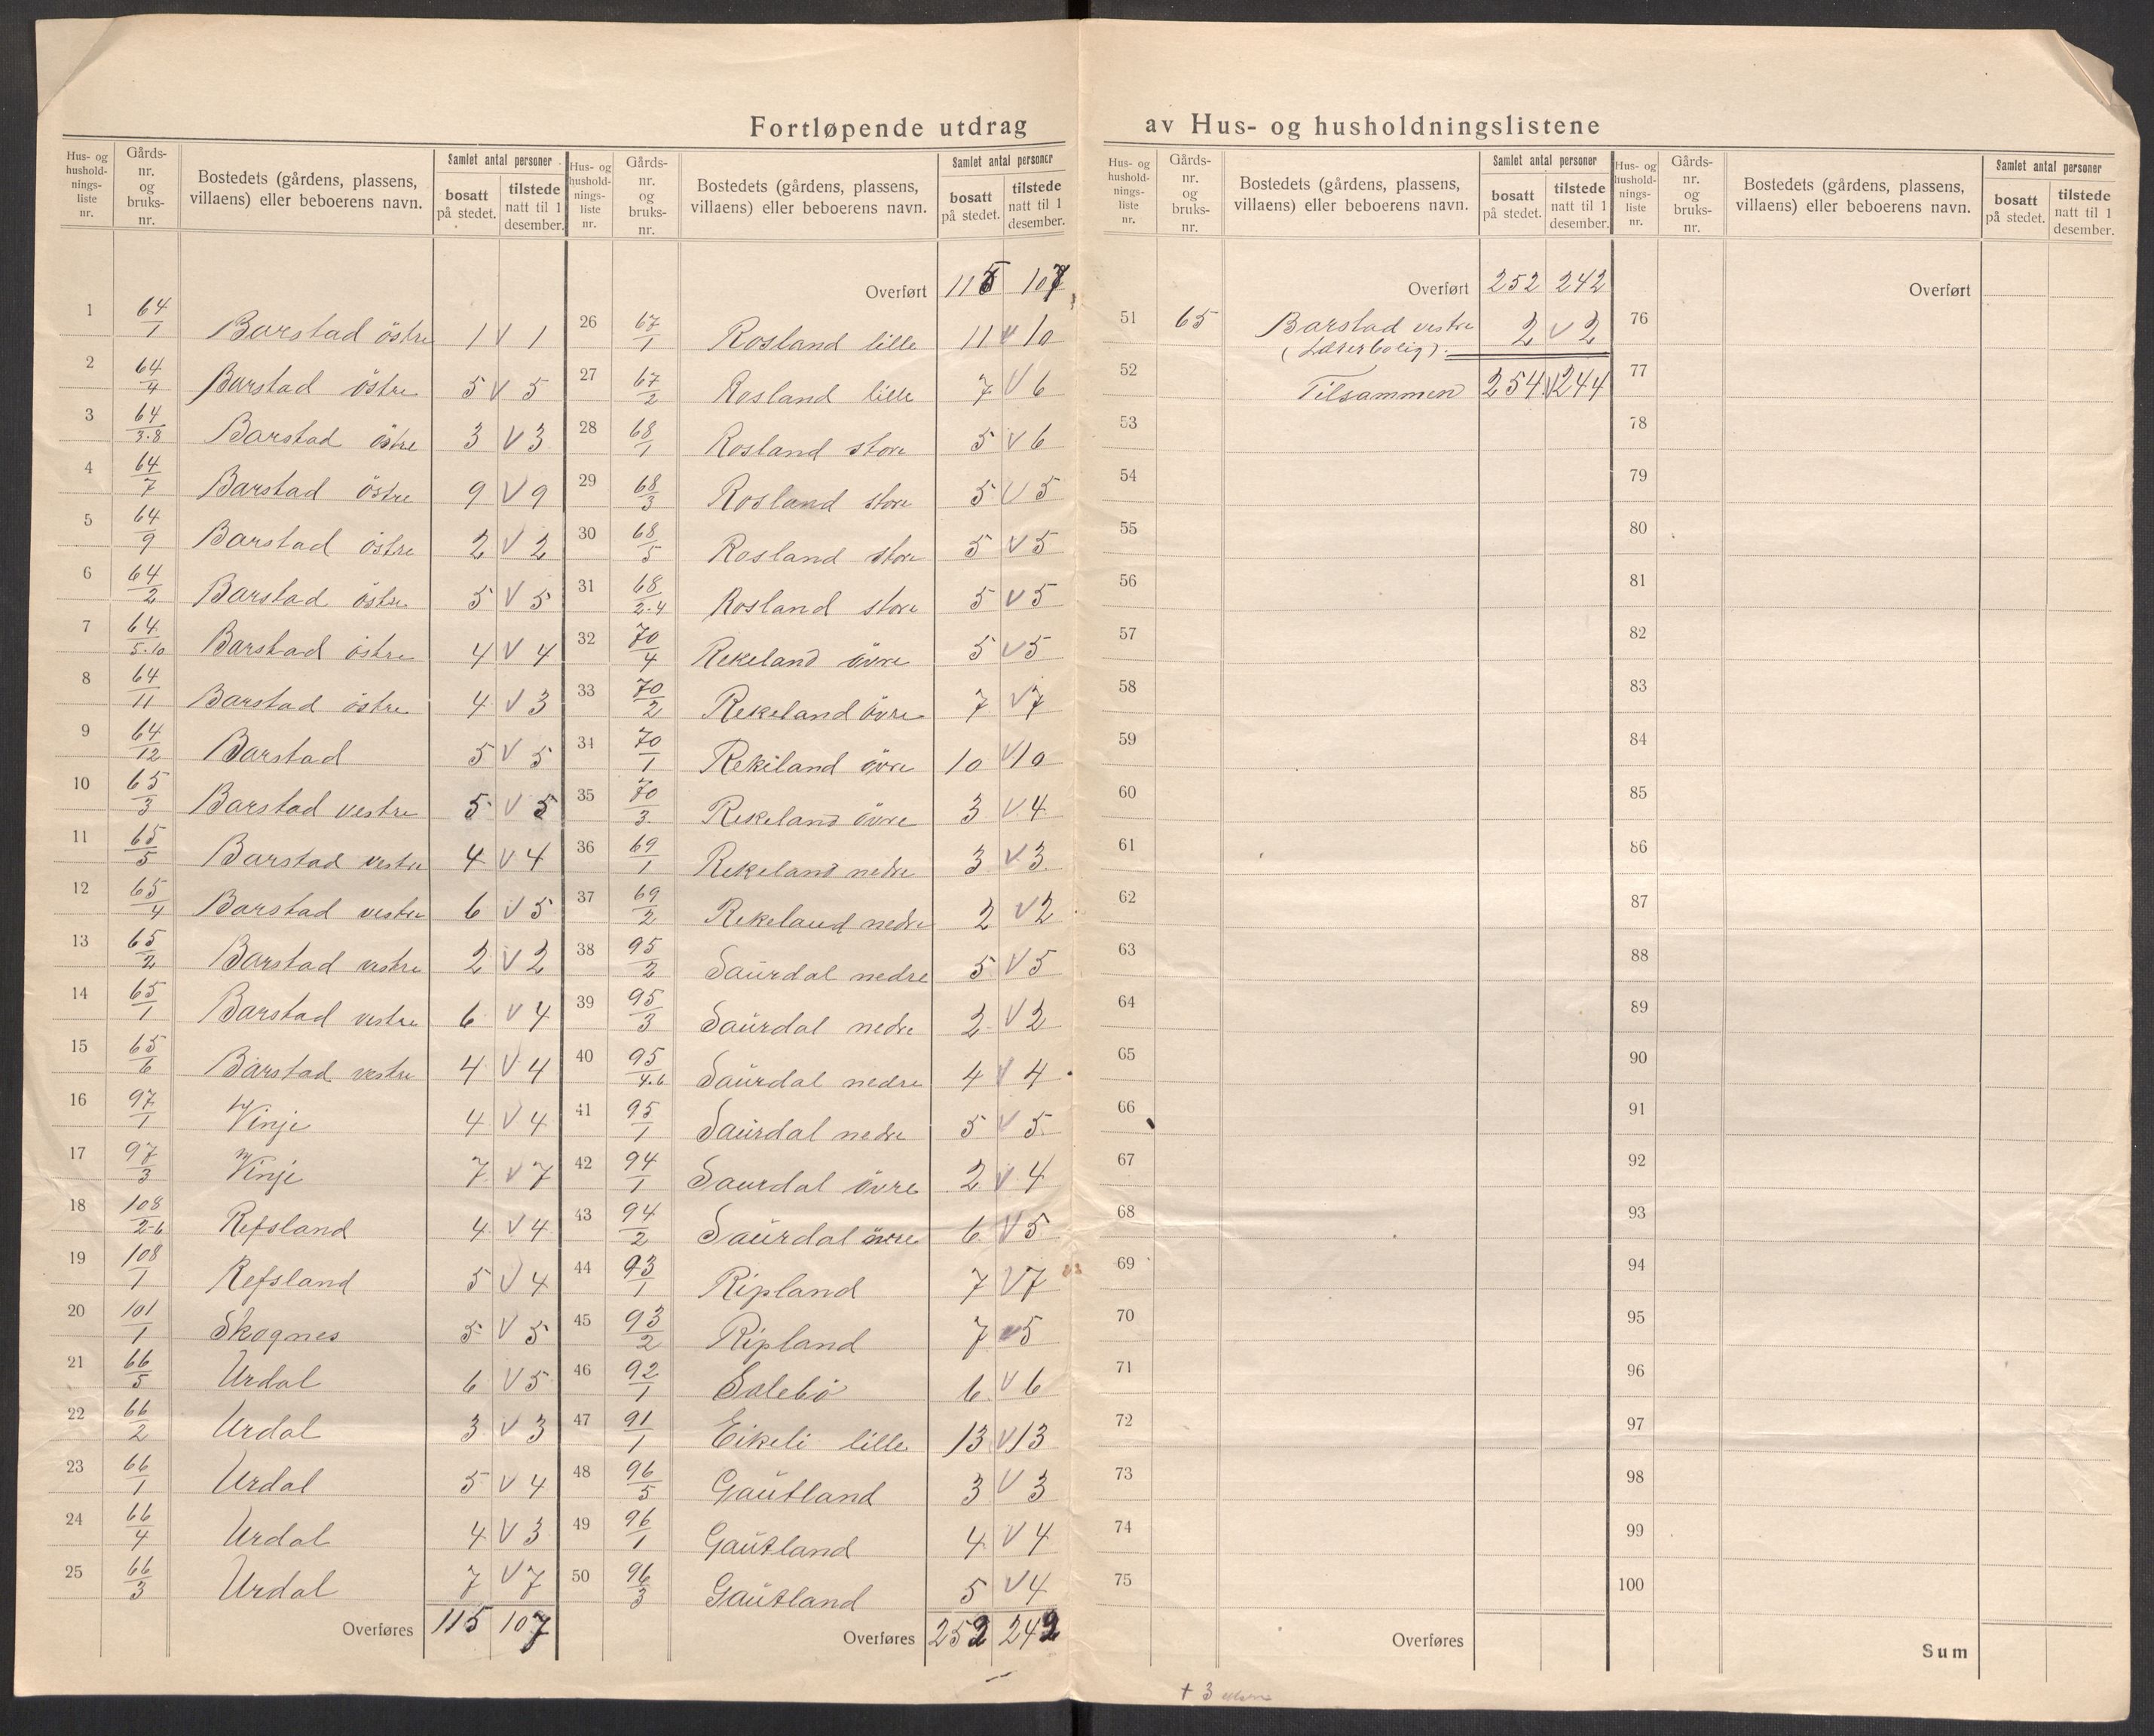 Fortløpende utdrag av Hus- og husholdningslistene
Hus- og hushold-nings-liste nr. | Gårds-nr. og bruks-nr. | Bostedets (gårdens, plassens, villaens) eller beboerens navn. | Samlet antal personer | bosatt på stedet. | tilstede natt til 1 desember.
1 64/1 Barstad östre 1 V 1
2 64/4 Barstad östre 5 V 5
3 64/3.8 Barstad östre 3 V 3
4 64/7 Barstad östre 9 V 9
5 64/9 Barstad östre 2 V 2
6 64/2 Barstad östre 5 V 5
7 64/5.10 Barstad östre 4 V 4
8 64/11 Barstad östre 4 V 3
9 64/12 Barstad 5 V 5
10 65/3 Barstad vestre 5 V 5
11 65/5 Barstad vestre 4 V 4
12 65/4 Barstad vestre 6 V 5
13 65/2 Barstad vestre 2 V 2
14 65/1 Barstad vestre 6 V 4
15 65/6 Barstad vestre 4 V 4
16 97/1 Vinje 4 V 4
17 97/3 Vinje 7 V 7
18 108/2-6 Refsland 4 V 4
19 108/1 Refsland 5 V 4
20 101/1 Skognes 5 V 5
21 66/5 Urdal 6 V 5
22 66/2 Urdal 3 V 3
23 66/1 Urdal 5 V 4
24 66/4 Urdal 4 V 3
25 66/3 Urdal 7 V 7
Overføres 115 107
Hus- og hushold-nings-liste nr. | Gårds-nr. og bruks-nr. | Bostedets (gårdens, plassens, villaens) eller beboerens navn. | Samlet antal personer | bosatt på stedet. | tilstede natt til 1 desember.
Overført 115 107
26 67/1 Rosland lille 11 V 10
27 67/2 Rosland lille 7 V 6
28 68/1 Rosland store 5 V 6
29 68/3 Rosland store 5 V 5
30 68/5 Rosland store 5 V 5
31 68/2.4 Rosland store 5 V 5
32 70/4 Rekeland övre 5 V 5
33 70/2 Rekeland övre 7 V 7
34 70/1 Rekeland övre 10 V 10
35 70/3. Rekeland övre 3 V 4
36 69/1 Rekeland nedre 3 V 3
37 69/2 Rekeland nedre 2 V 2
38 95/2 Saurdal nedre 5 V 5
39 95/3 Saurdal nedre 2 V 2
40 95/4.6 Saurdal nedre 4 V 4
41 95/1 Saurdal nedre 5 V 5
42 94/1 Saurdal övre 2 V 4
43 94/2 Saurdal övre 6 V 5
44 93/1 Ripland 7 V 7
45 93/2 Ripland 7 V 5
46 92/1 Salebö 6 V 6
47 91/1 Eikeli lille 13 V 13
48 96/5 Gautland 3 V 3
49 96/1 Gautland 4 V 4
50 96/3 Gautland 5 V 4
Overføres 252 242
Hus- og hushold-nings-liste nr. | Gårds-nr. og bruks-nr. | Bostedets (gårdens, plassens, villaens) eller beboerens navn. | Samlet antal personer | bosatt på stedet. | tilstede natt til 1 desember.
Overført 252 242
51 65 Barstad vestre 2 V 2
(Lærerbolig).
52 Tilsammen 254 V 244
53
54
55
56
57
58
59
60
61
62
63
64
65
66
67
68
69
70
71
72
73
74
75
Overføres
Hus- og hushold-nings-liste nr. | Gårds-nr. og bruks-nr. | Bostedets (gårdens, plassens, villaens) eller beboerens navn. | Samlet antal personer | bosatt på stedet. | tilstede natt til 1 desember.
Overført
76
77
78
79
80
81
82
83
84
85
86
87
88
89
90
91
92
93
94
95
96
97
98
99
100
Sum
+ 3